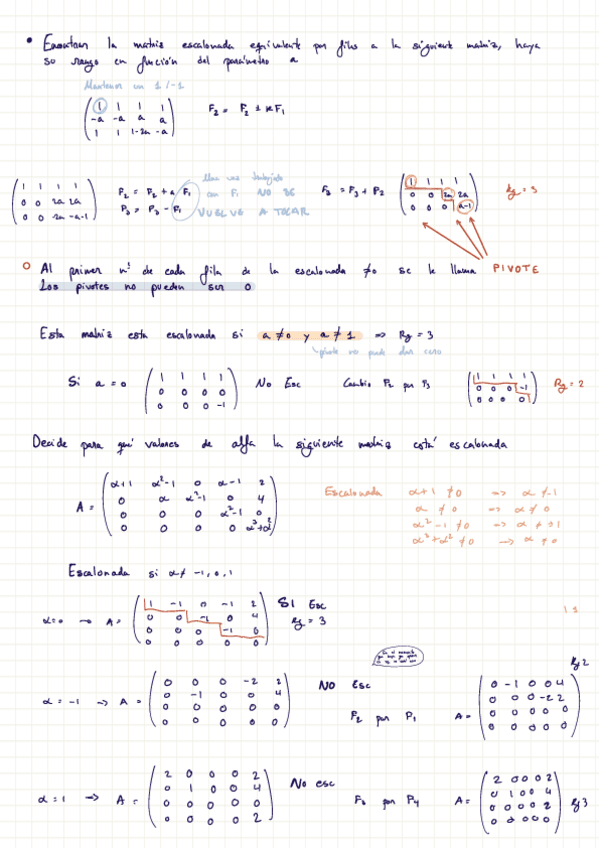 • Encontrar la matriz escalonada equivalente por filas a la siguiente matriz, haya
su rango en función del parámetro a
Mantener un 1/-1
1 1 1 1
-a -a a a
1 1 1-2a -a
F₂ = F₂ ± k F₁
1 1 1 1
0 0 2a 2a
0 0 -2a -a-1
F₂ = F₂ + a F₁
F₃ = F₃ - F₁
una vez trabajado
con F₁ NO SE
VUELVE A TOCAR
F₃ = F₃ + F₂
1 1 1 1
0 0 2a 2a
0 0 0 a-1
Rg = 3
Al primer nº de cada fila de la escalonada ≠0 se le llama PIVOTE
Los pivotes no pueden ser 0
Esta matriz esta escalonada si a≠0 y a≠1 => Rg = 3
pivote no puede dar cero
Si a=0
1 1 1 1
0 0 0 0
0 0 0 -1
No Esc
Cambio F₂ por F₃
1 1 1 1
0 0 0 -1
0 0 0 0
Rg = 2
Decide para qué valores de alfa la siguiente matriz está escalonada
A =
α+1 α²-1 0 α-1 2
0 α α²-1 0 4
0 0 0 α²-1 0
0 0 0 0 α³+α²
Escalonada α+1 ≠0 => α ≠-1
α ≠0 => α ≠0
α²-1 ≠0 -> α ≠ ±1
α³+α² ≠0 -> α ≠0
Escalonada si α≠ -1, 0, 1
α=0 -> A =
1 -1 0 -1 2
0 0 -1 0 4
0 0 0 -1 0
SI Esc
Rg = 3
1 1
α = -1 -> A =
0 0 0 -2 2
0 -1 0 0 4
0 0 0 0 0
0 0 0 0 0
NO Esc
F₂ por F₁
A =
0 -1 0 0 4
0 0 0 -2 2
0 0 0 0 0
0 0 0 0 0
Rg 2
α = 1 -> A =
2 0 0 0 2
0 1 0 0 4
0 0 0 0 0
0 0 0 0 2
No esc
F₃ por F₄
A =
2 0 0 0 2
0 1 0 0 4
0 0 0 0 2
0 0 0 0 0
Rg 3